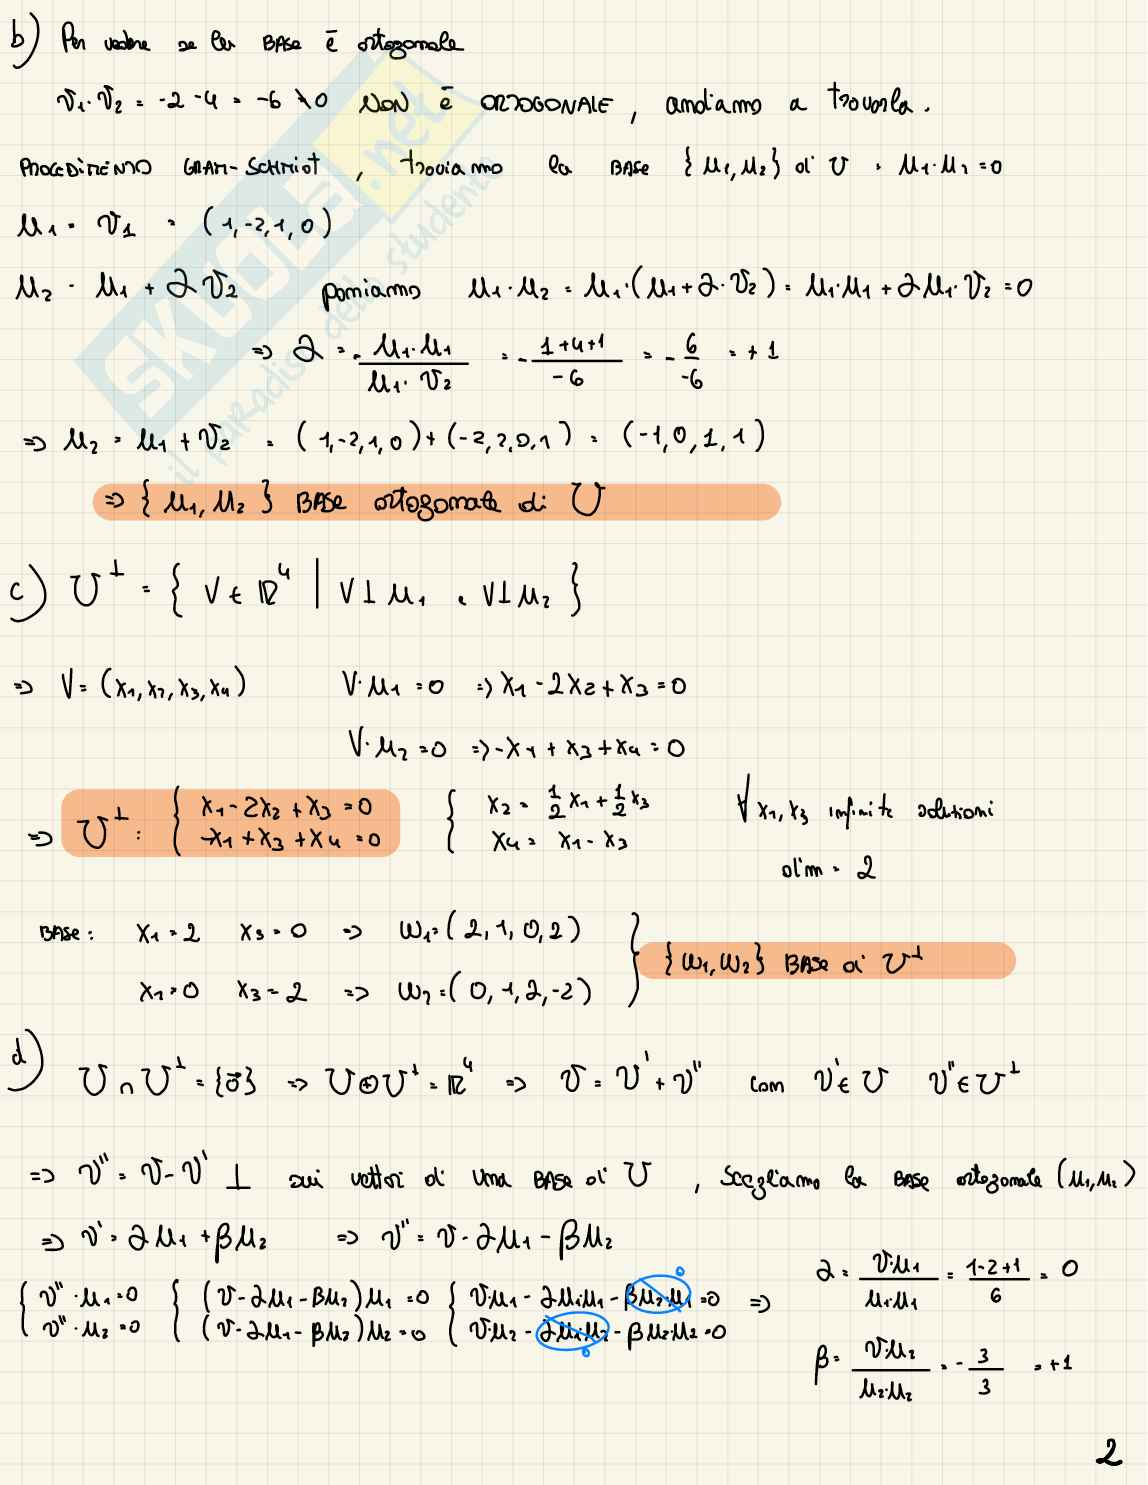 b) Per vedere se la BASE è ortogonale
v₁·v₂ = -2 -4 = -6 ≠0 NON è ORTOGONALE, andiamo a trovarla.
PROCEDIMENTO GRAM-SCHMIDT, troviamo la BASE {u₁,u₂} di U : u₁·u₂=0
u₁ = v₁ = (1,-2,1,0)
u₂ = u₁ + αv₂ poniamo u₁·u₂ = u₁·(u₁+α·v₂) = u₁·u₁ + αu₁·v₂ =0
=> α = - u₁·u₁ / u₁·v₂ = - 1+4+1 / -6 = - 6 / -6 = +1
=> u₂ = u₁ + v₂ = (1,-2,1,0)+(-2,2,0,1) = (-1,0,1,1)
=> {u₁,u₂} BASE ortogonale di U
c) U^⊥ = { V ∈ ℝ⁴ | V⊥u₁ , V⊥u₂ }
=> V=(x₁,x₂,x₃,x₄) V·u₁=0 => x₁-2x₂+x₃=0
V·u₂=0 => -x₁+x₃+x₄=0
=> U^⊥ : { x₁-2x₂+x₃=0 { x₂ = 1/2 x₁ + 1/2 x₃ ∀ x₁,x₃ infinite soluzioni
-x₁+x₃+x₄=0 x₄ = x₁-x₃
dim = 2
BASE: x₁=2 x₃=0 => w₁=(2,1,0,2)
} {w₁,w₂} BASE di U^⊥
x₁=0 x₃=2 => w₂=(0,1,2,-2)
d) U∩U^⊥={0⃗} => U⊕U^⊥=ℝ⁴ => v = v' + v'' con v'∈U v''∈U^⊥
=> v''=v-v' ⊥ sui vettori di una BASE di U, scegliamo la BASE ortogonale (u₁,u₂)
=> v'=αu₁+βu₂ => v''=v-αu₁-βu₂
α = v·u₁ / u₁·u₁ = 1-2+1 / 6 = 0
{ v''·u₁=0 { (v-αu₁-βu₂)u₁=0 { v·u₁-αu₁·u₁-βu₂·u₁=0 0 =>
v''·u₂=0 (v-αu₁-βu₂)u₂=0 v·u₂-αu₁·u₂-βu₂·u₂=0 0
β = v·u₂ / u₂·u₂ = - 3 / 3 = +1
2
SKUOLA.net
il paradiso dello studente